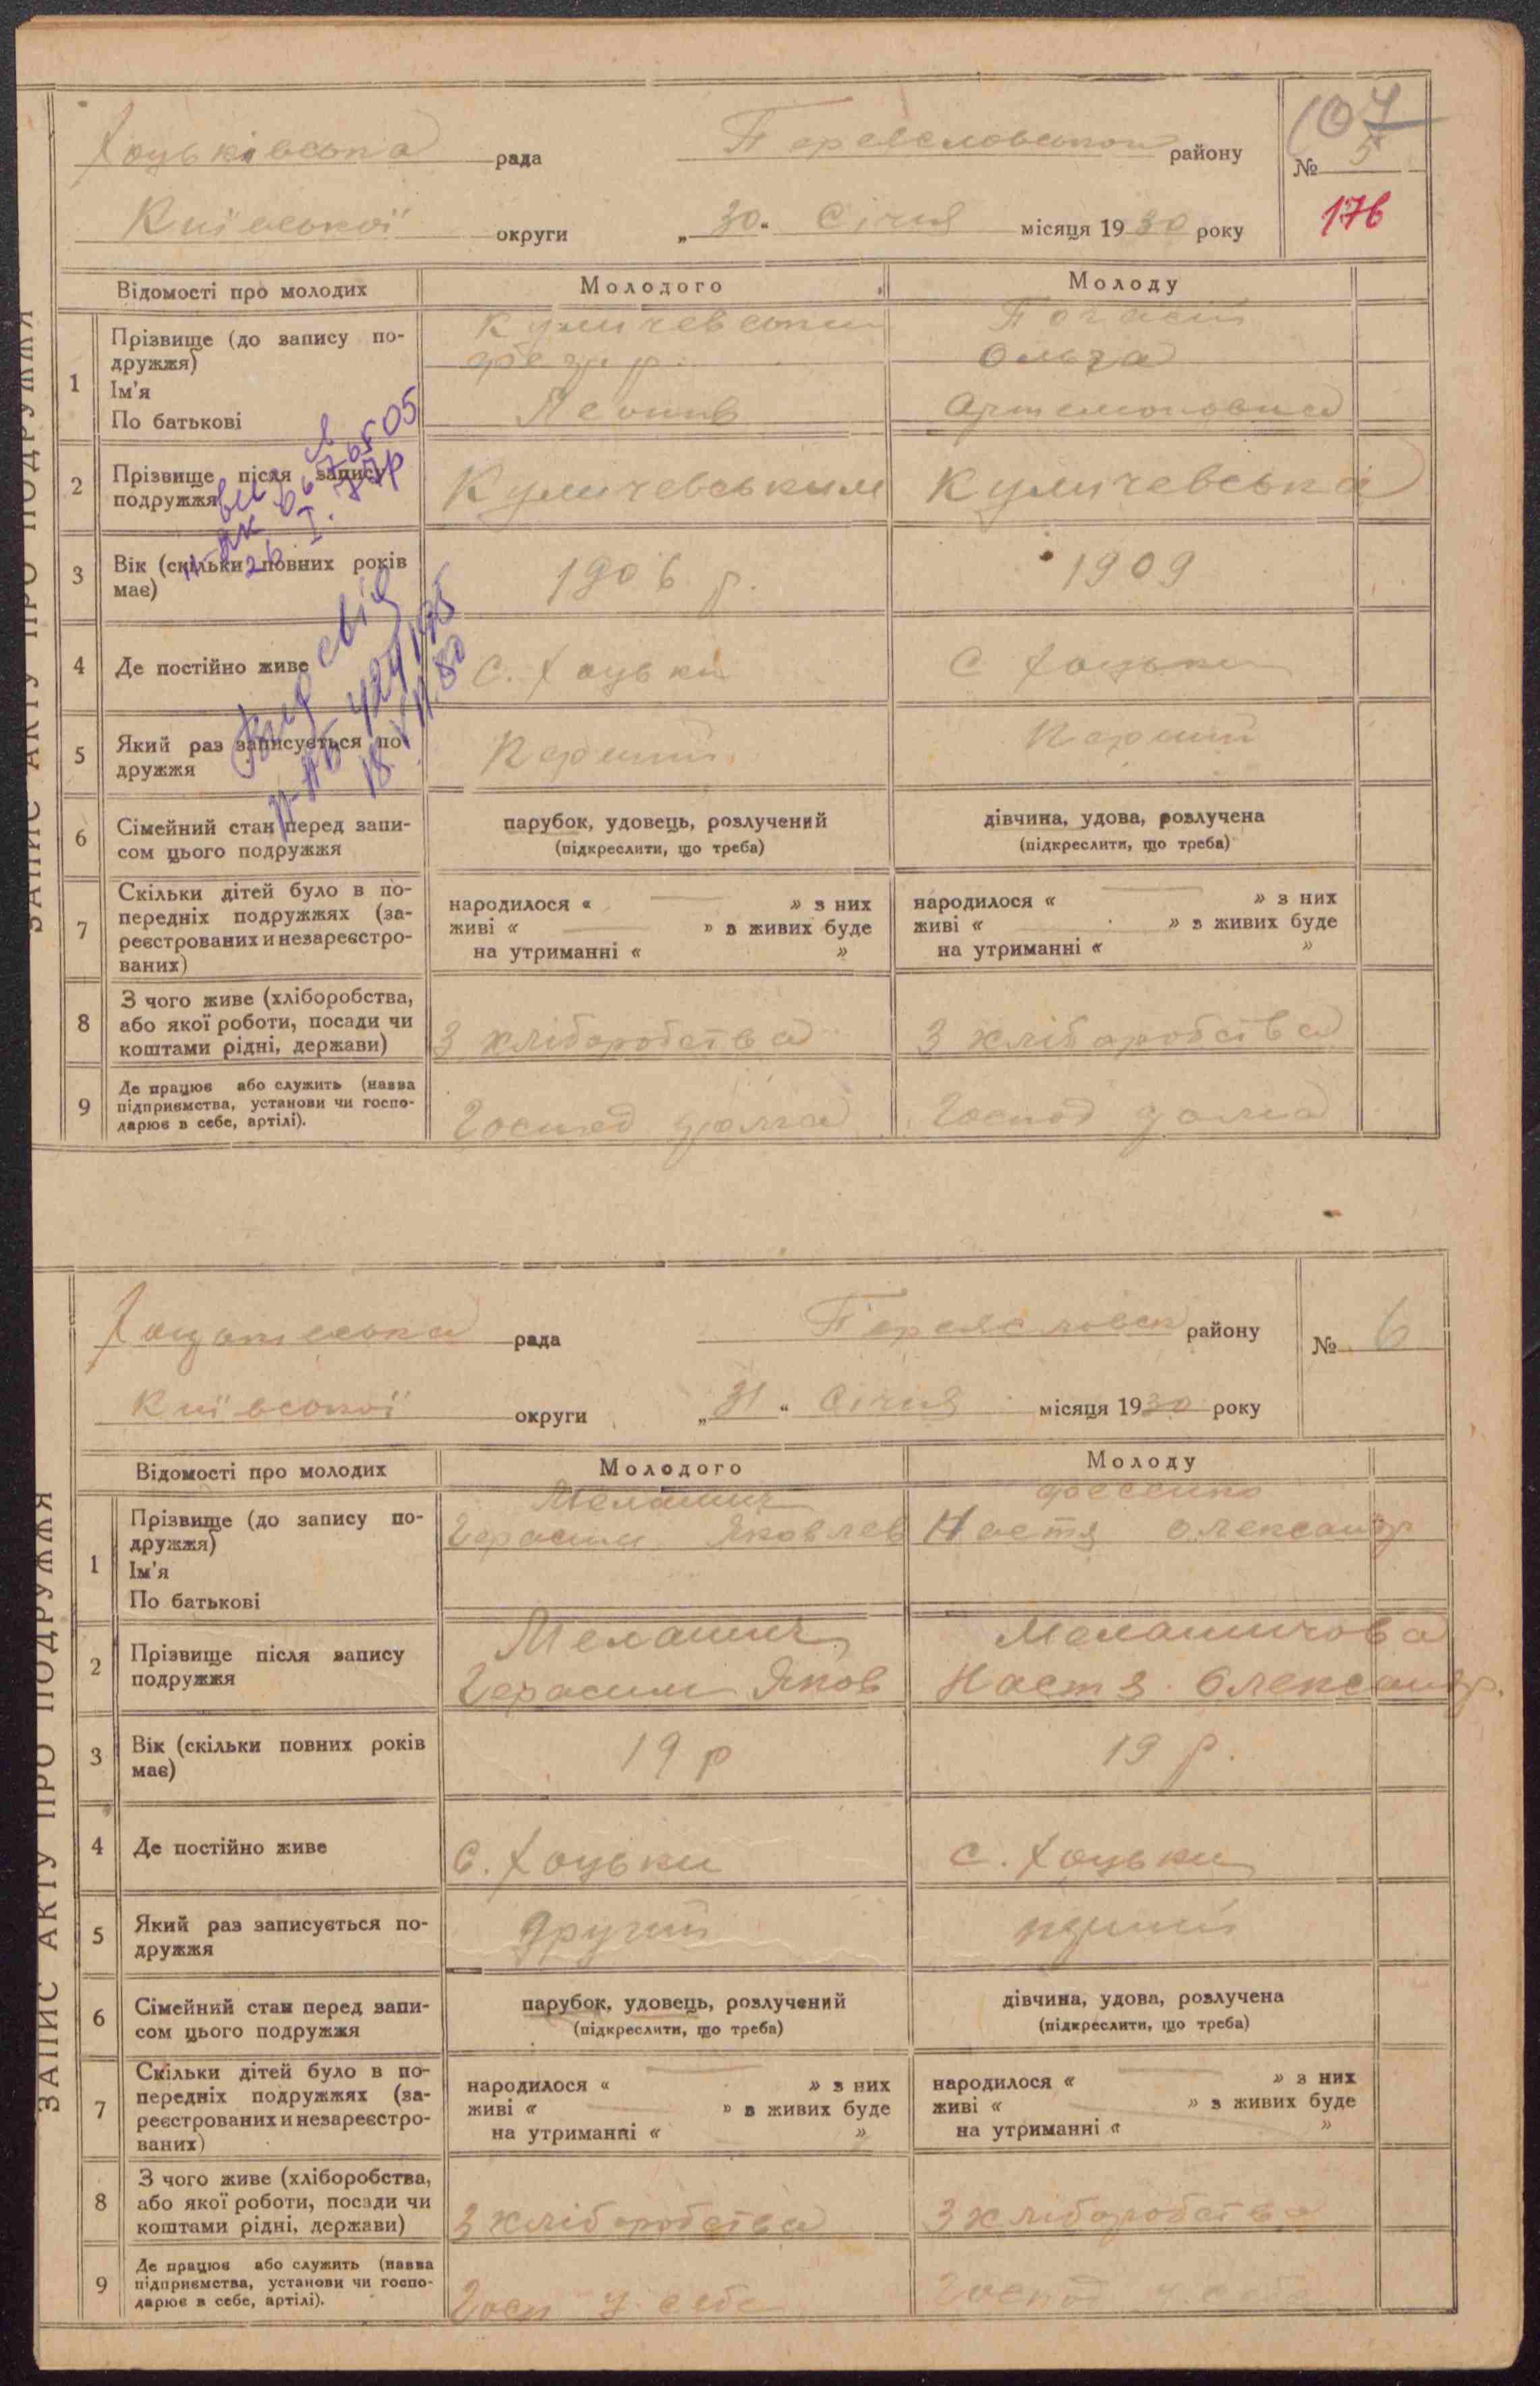 ЗАПИС АКТУ ПРО ПОДРУЖЖЯ
107
Хоцьківська рада Переяславської району № 5
Київської округи „30“ Січня місяця 1930 року
176
Відомості про молодих Молодого Молоду
1 Прізвище (до запису подружжя)
Ім'я
По батькові
Куличевський
Федир
Ольга
Артемоновна
2 Прізвище після запису
подружжя
Куличевським Куличевська
3 Вік (скільки повних років
має)
1906 р. 1909
4 Де постійно живе с. Хоцьки с Хоцьки
5 Який раз записується по-
дружжя
Перший Перший
6 Сімейний стан перед запи-
сом цього подружжя
парубок, удовець, розлучений
(підкреслити, що треба)
дівчина, удова, розлучена
(підкреслити, що треба)
7 Скільки дітей було в по-
передніх подружжях (за-
реєстрованих и незареєстро-
ваних)
народилося « » з них
живі « » в живих буде
на утриманні « »
народилося « » з них
живі « » в живих буде
на утриманні « »
8 З чого живе (хліборобства,
або якої роботи, посади чи
коштами рідні, держави)
З хліборобства З хліборобства
9 Де працює або служить (назва
підприємства, установи чи госпо-
дарює в себе, артілі).
Господ дома Господ дома
ЗАПИС АКТУ ПРО ПОДРУЖЖЯ
рада Переясловск району № 6
Київської округи „31“ Січня місяця 1930 року
Відомості про молодих Молодого Молоду
1 Прізвище (до запису по-
дружжя)
Ім'я
По батькові
Меламич
Герасим Яковлев
Фесенко
Настя Олександр
2 Прізвище після запису
подружжя
Меламич
Герасим Яков
Меламичова
Настя Олександр.
3 Вік (скільки повних років
має)
19 р 19 р.
4 Де постійно живе с. Хоцьки с. Хоцьки
5 Який раз записується по-
дружжя
другий
6 Сімейний стан перед запи-
сом цього подружжя
парубок, удовець, розлучений
(підкреслити, що треба)
дівчина, удова, розлучена
(підкреслити, що треба)
7 Скільки дітей було в по-
передніх подружжях (за-
реєстрованих и незареєстро-
ваних)
народилося « » з них
живі « » в живих буде
на утриманні « »
народилося « » з них
живі « » в живих буде
на утриманні « »
8 З чого живе (хліборобства,
або якої роботи, посади чи
коштами рідні, держави)
З хліборобства З хліборобства
9 Де працює або служить (назва
підприємства, установи чи госпо-
дарює в себе, артілі).
Госп у себе Господ у себе